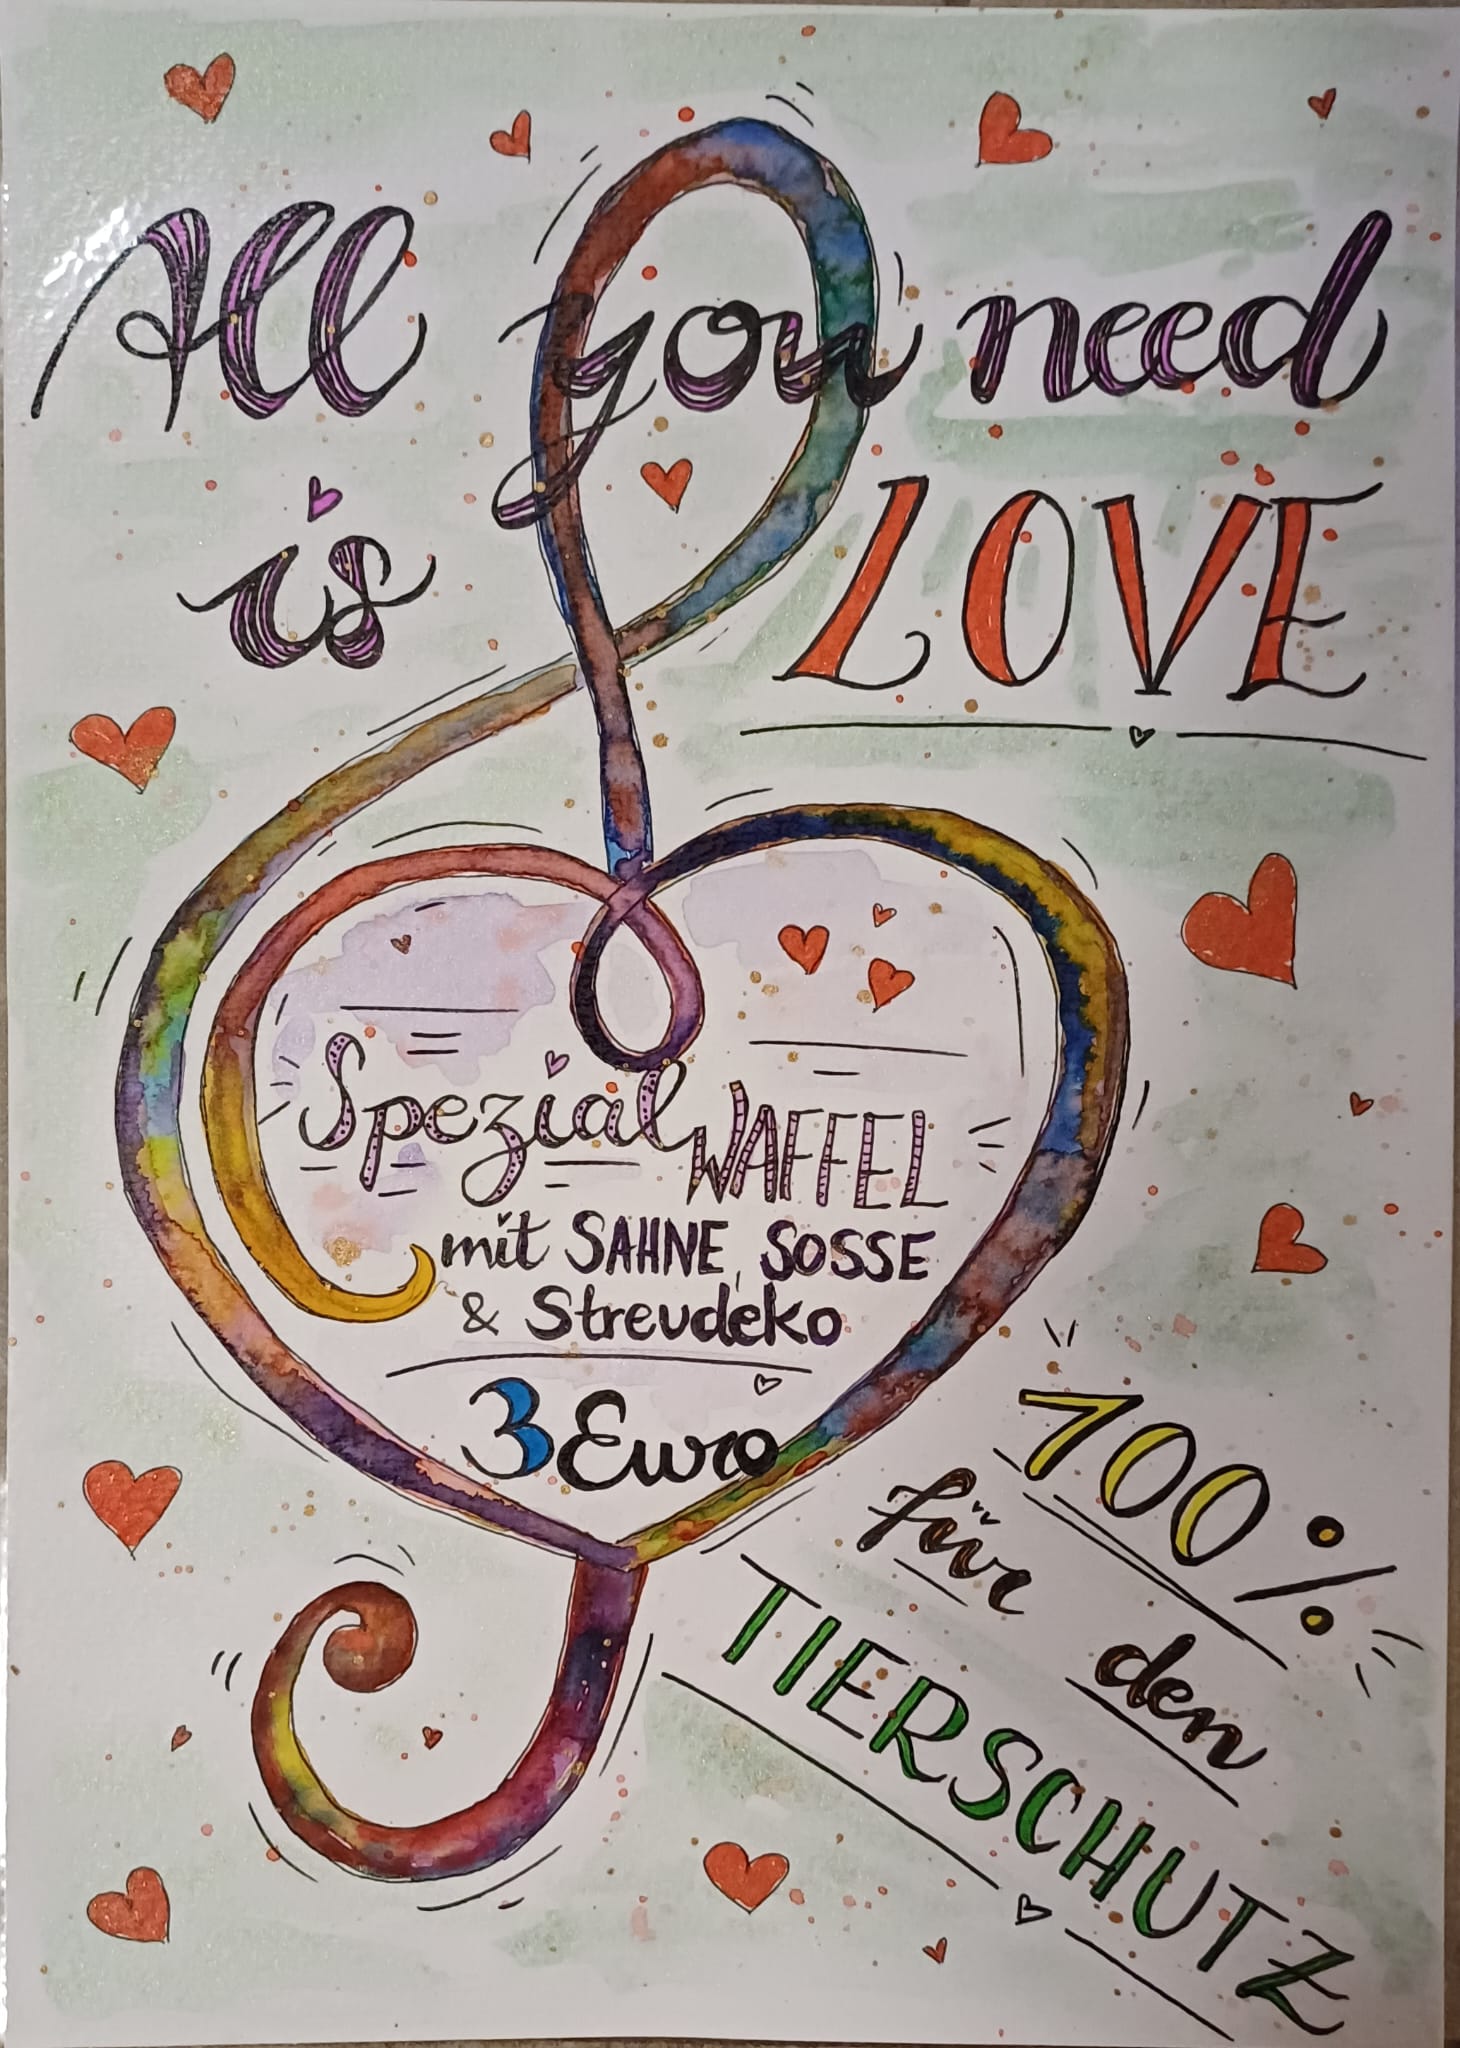 All you need
is LOVE
Spezial WAFFEL
mit SAHNE, SOSSE
& Streudeko
3 Euro
100%
für den
TIERSCHUTZ